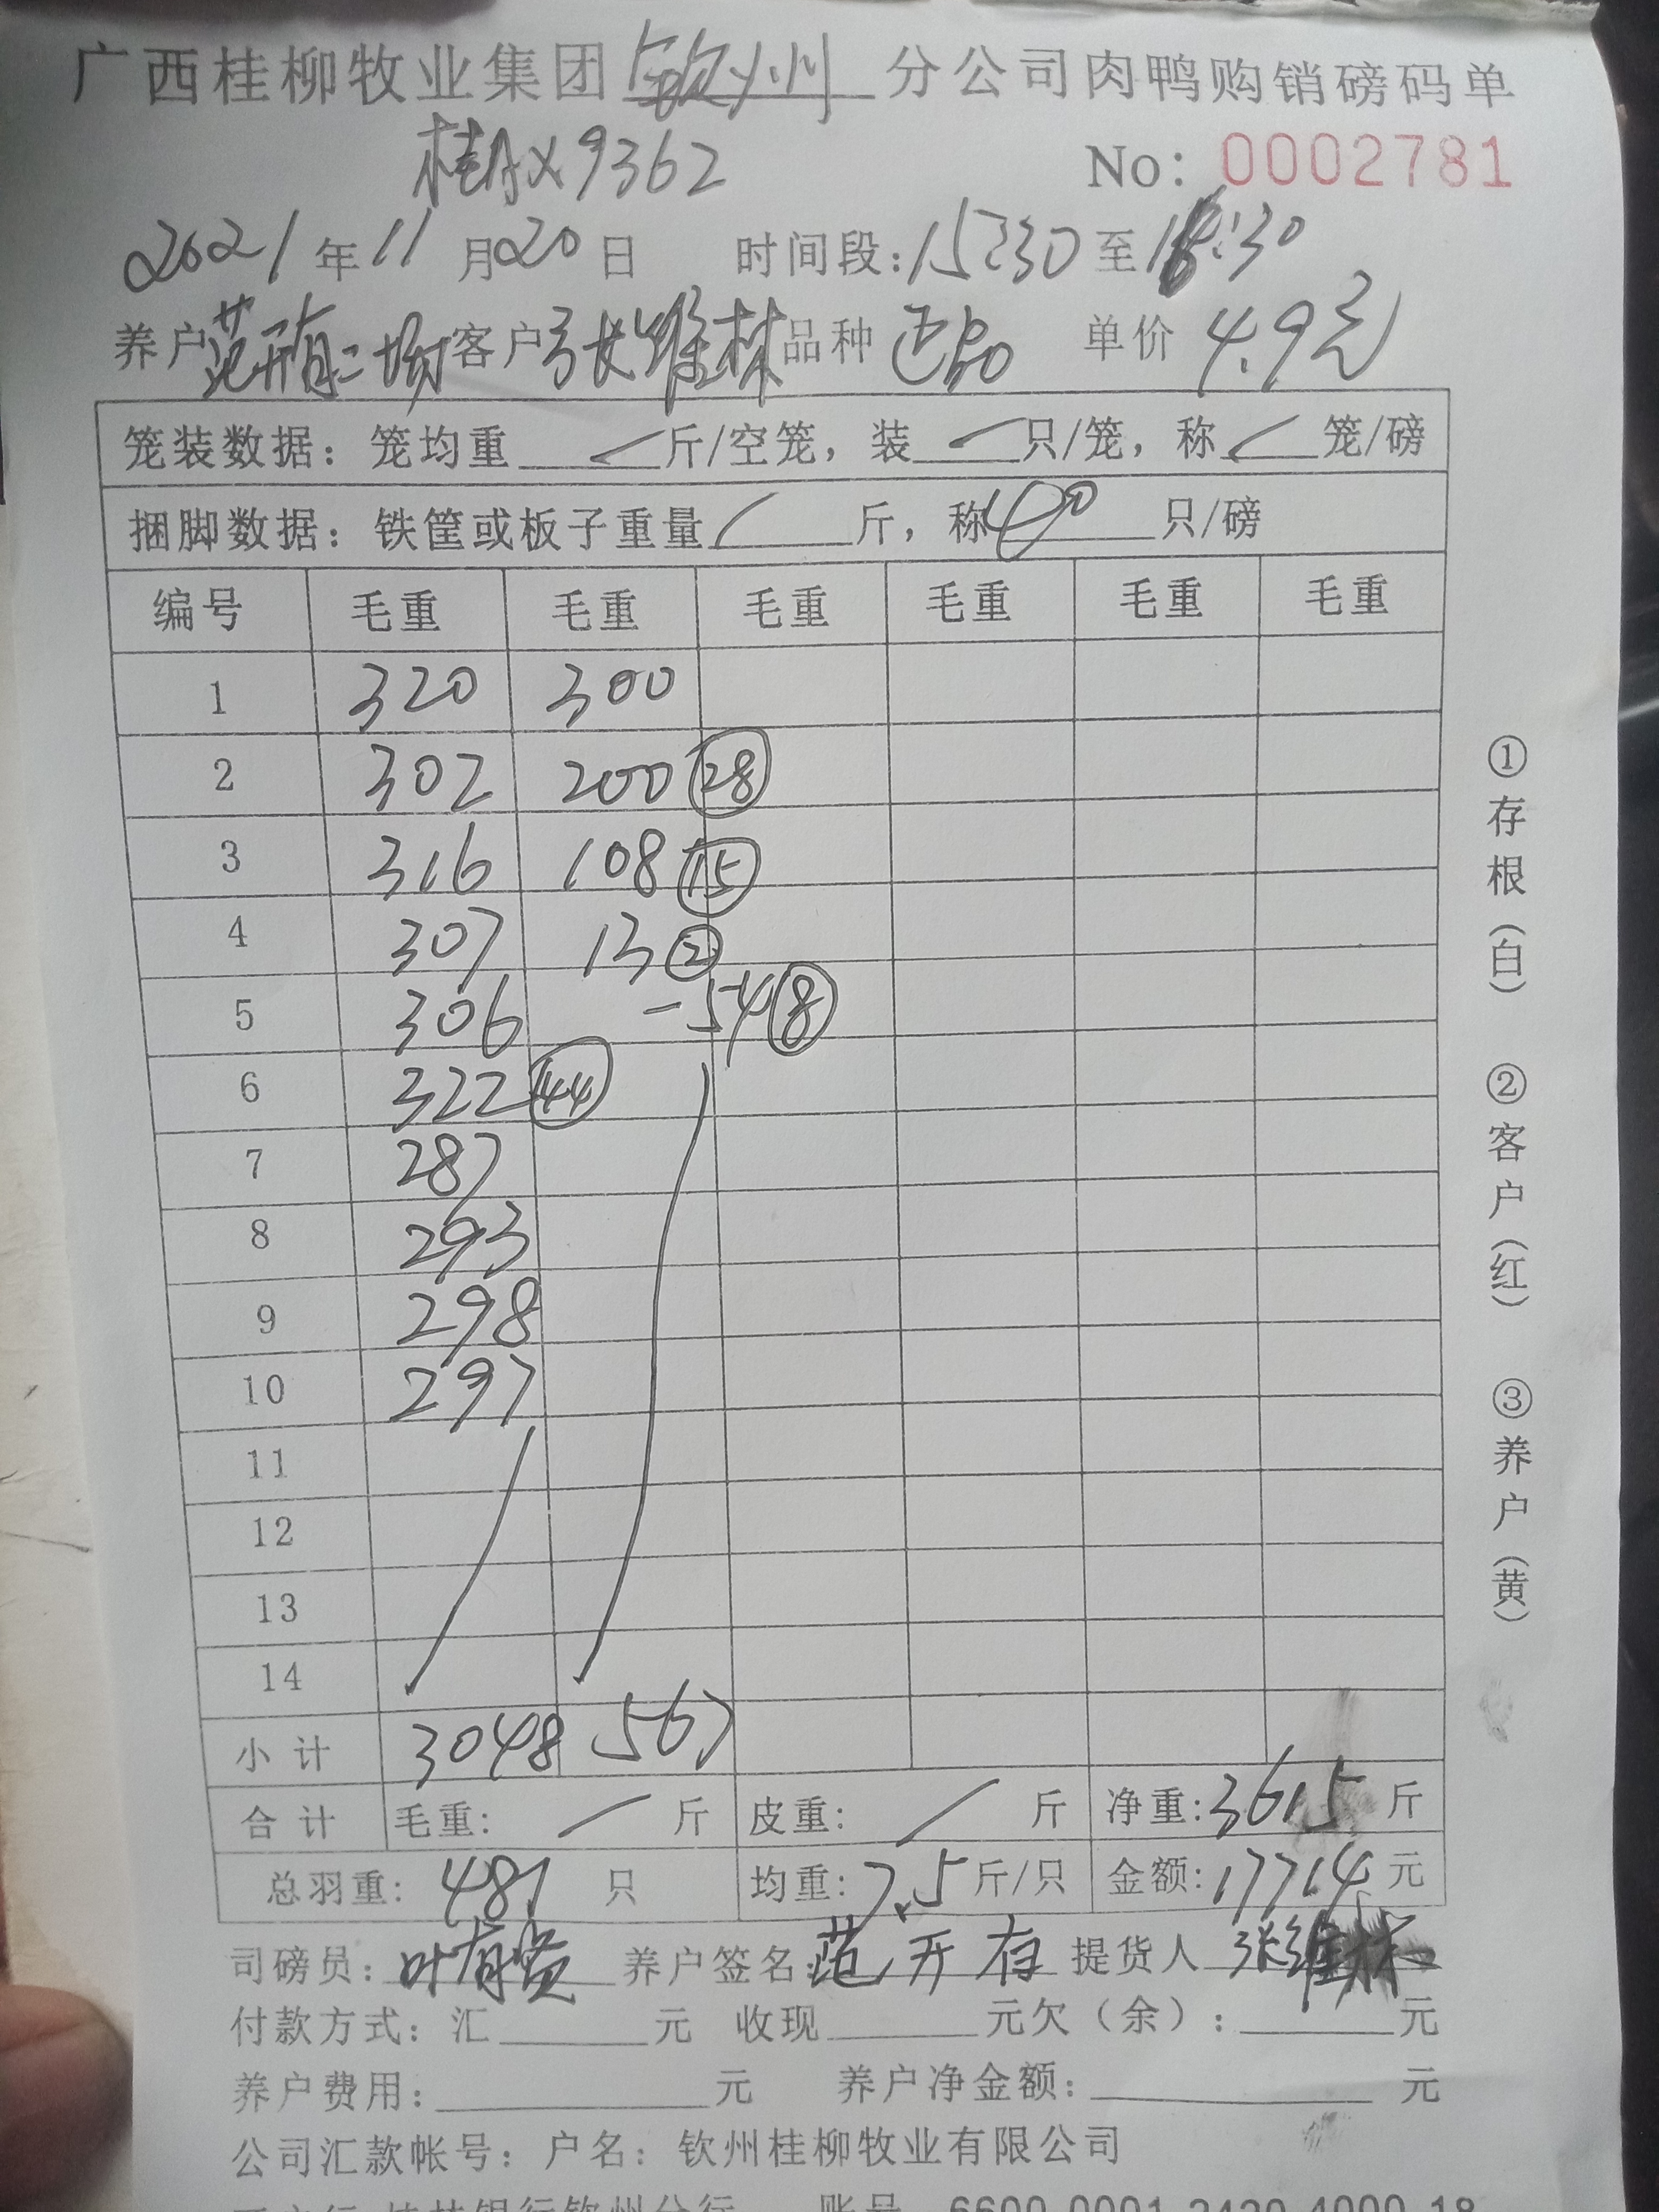 广西桂柳牧业集团钦州分公司肉鸭购销磅码单
桂AX9362 No: 0002781
2021年11月20日 时间段:15:30至18:30
养户范开有二场客户张维林品种正品 单价4.9元
笼装数据: 笼均重 / 斤/空笼, 装 / 只/笼, 称 / 笼/磅
捆脚数据: 铁筐或板子重量 / 斤, 称40只/磅
编号 毛重 毛重 毛重 毛重 毛重 毛重
1 320 300
2 302 200 28
3 316 108 15
4 307 13 2
5 306 -54 8
6 322 44
7 287
8 293
9 298
10 297
11
12
13
14
小计 3048 567
合计 毛重: / 斤 皮重: / 斤 净重:3615斤
总羽重: 481 只 均重:7.5斤/只 金额:17714元
司磅员: 养户签名:范开存 提货人 张维林
付款方式: 汇 元 收现 元欠(余): 元
养户费用: 元 养户净金额: 元
公司汇款帐号: 户名: 钦州桂柳牧业有限公司
①存根(白) ②客户(红) ③养户(黄)